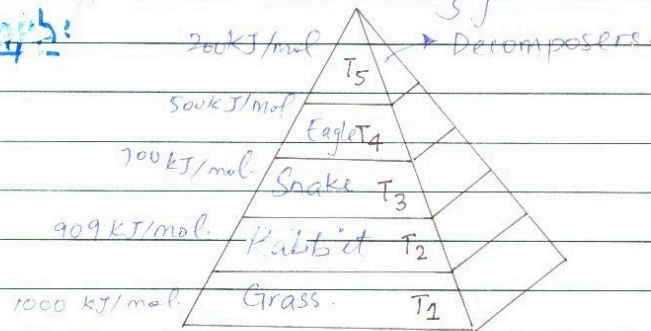 200kJ/mol
Decomposers
T5
500kJ/mol
Eagle T4
700 kJ/mol.
Snake T3
909 kJ/mol.
Rabbit T2
1000 kJ/mol.
Grass. T1